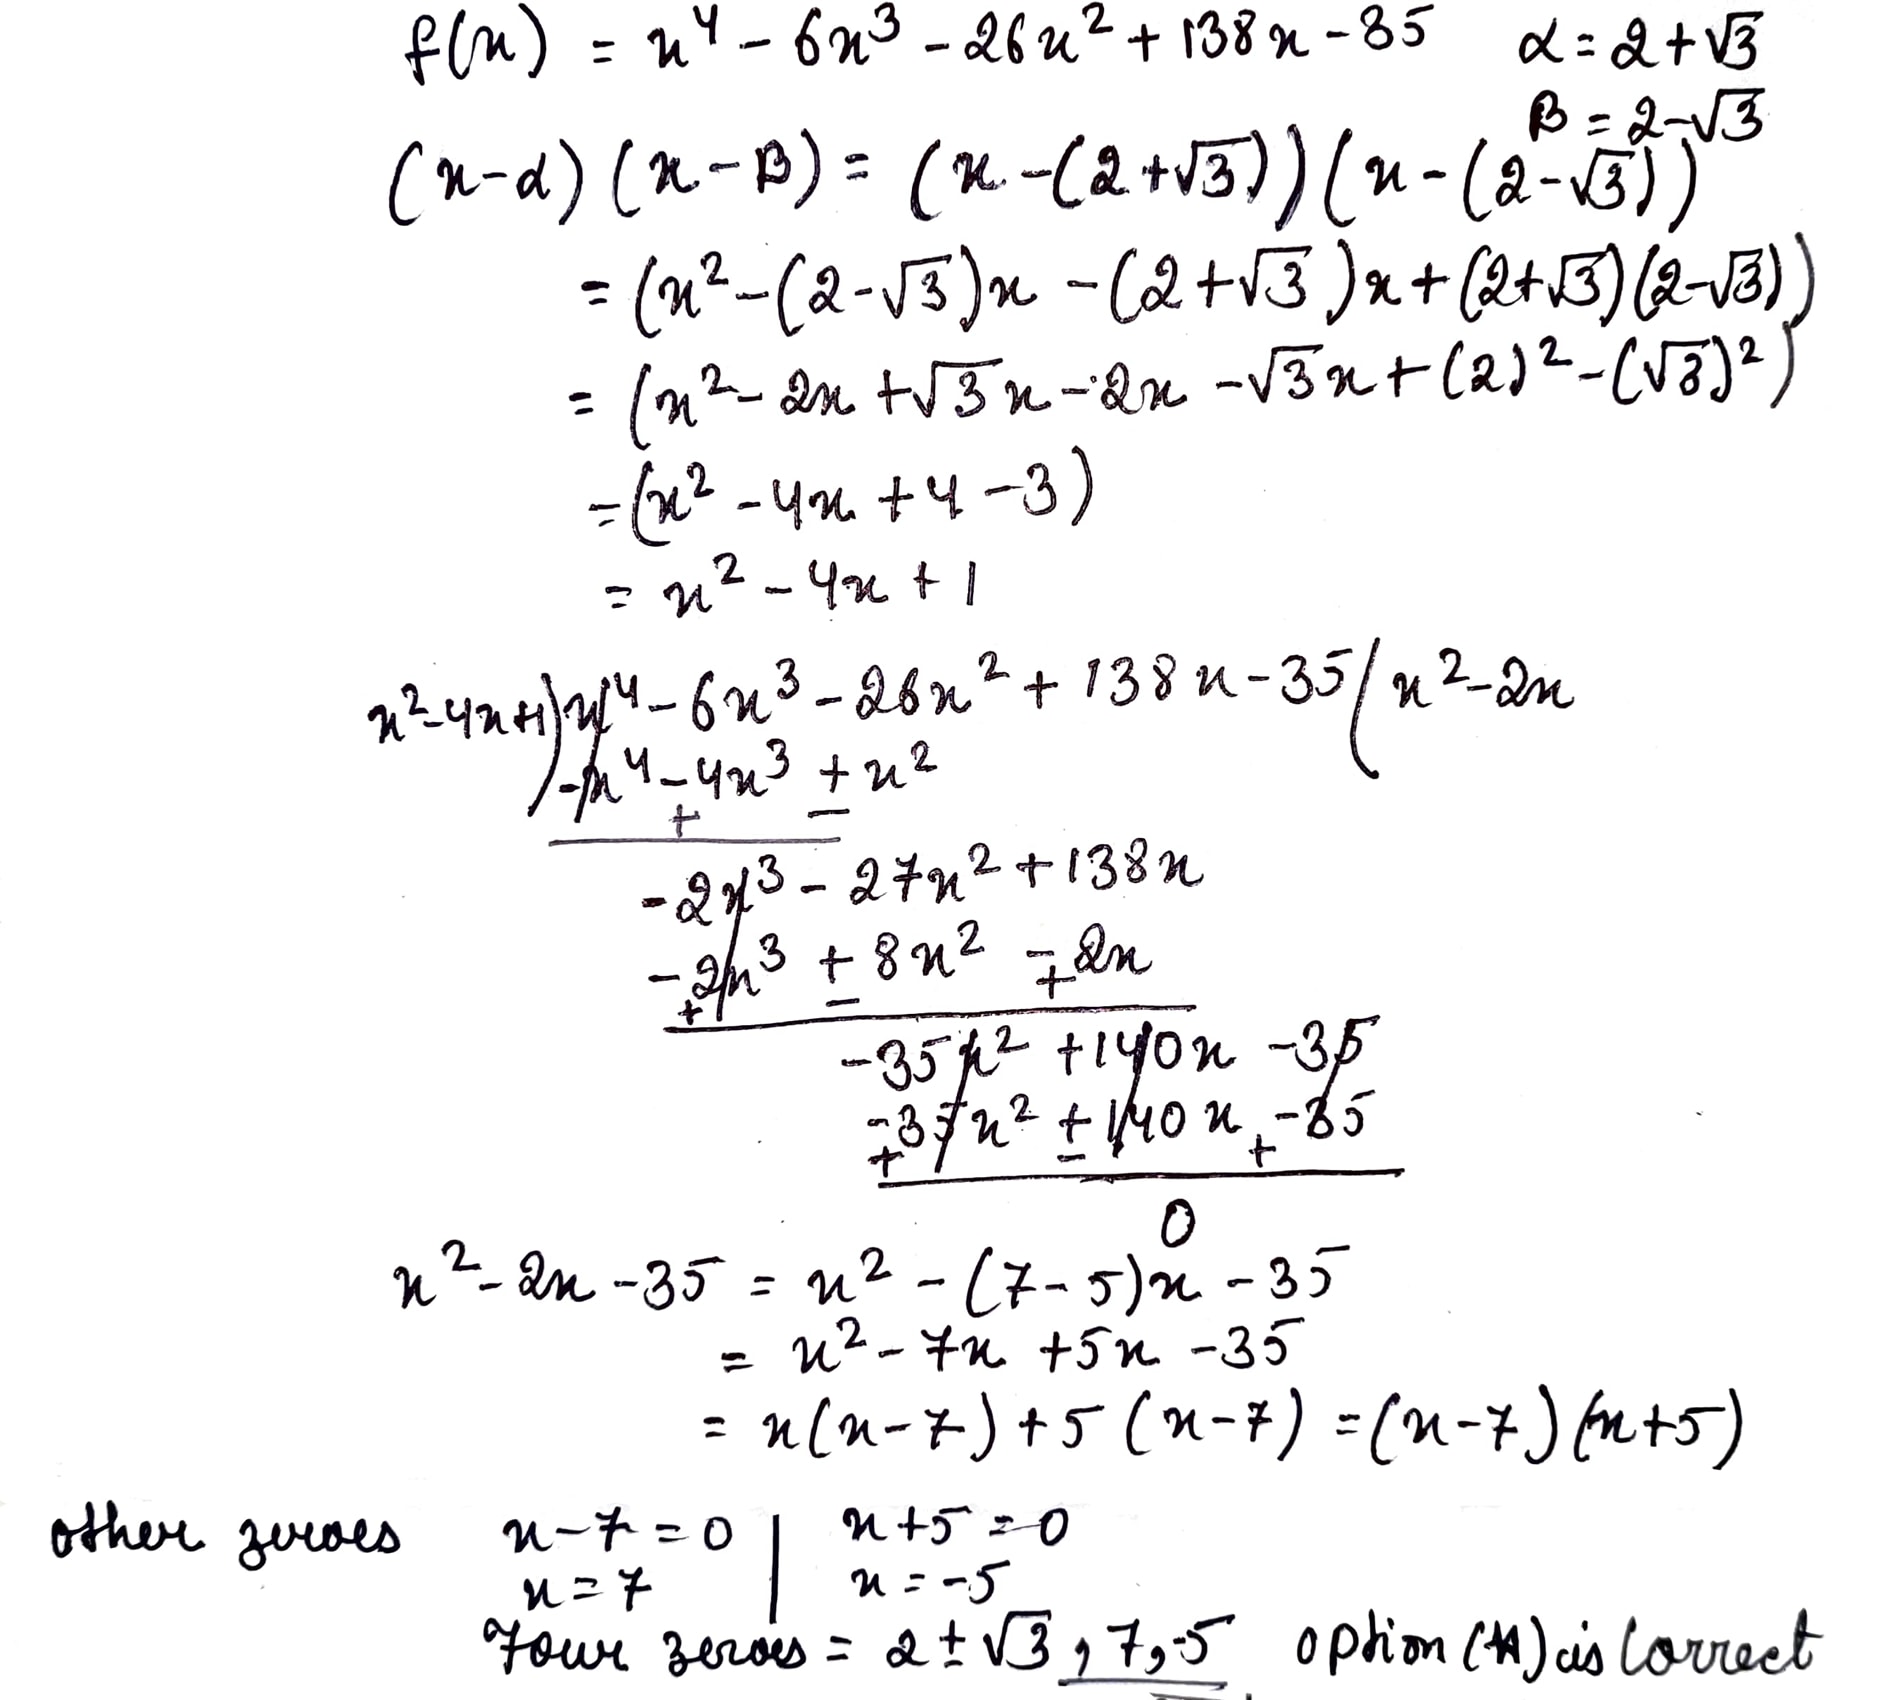 f(x) = x⁴ - 6x³ - 26x² + 138x - 35   α = 2 + √3
β = 2 - √3
(x - α) (x - β) = (x - (2 + √3)) (x - (2 - √3))
= (x² - (2 - √3)x - (2 + √3)x + (2 + √3)(2 - √3))
= (x² - 2x + √3x - 2x - √3x + (2)² - (√3)²)
= (x² - 4x + 4 - 3)
= x² - 4x + 1
x² - 4x + 1) x⁴ - 6x³ - 26x² + 138x - 35 ( x² - 2x
- x⁴ - 4x³ + x²
+ -
-2x³ - 27x² + 138x
-2x³ + 8x² - 2x
+ - +
-35x² + 140x - 35
-35x² + 140x - 35
+ - +
0
x² - 2x - 35 = x² - (7 - 5)x - 35
= x² - 7x + 5x - 35
= x(x - 7) + 5(x - 7) = (x - 7)(x + 5)
other zeroes x - 7 = 0 | x + 5 = 0
x = 7 | x = -5
Four zeroes = 2 ± √3, 7, -5 option (A) is correct